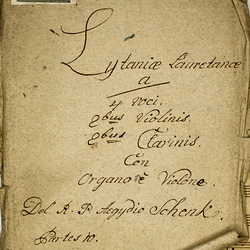 Lytaniæ Lauretanæ
a
4 voci.
2bus Violinis.
2bus Clarinis.
Con
Organo è Violone.
Del R. P. Aegydio Schenk.
Partes 10.